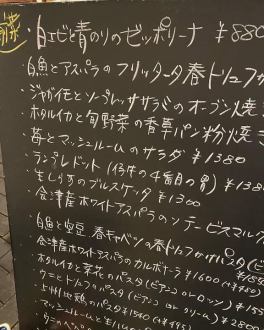 前菜
・白エビと青のりのゼッポリーナ ¥880
・白魚とアスパラのフリッタータ春トリュフが
・ジャガイモとソープレッササラミのオーブン焼き
・ホタルイカと旬野菜の香草パン粉焼き
・苺とマッシュルームのサラダ ¥1380
・ランプレドット(仔牛の4番目の胃) ¥138
・生しらすのブルスケッタ ¥1300
・会津産ホワイトアスパラのソテービスマルク
・白魚と空豆 春キャベツの春トリュフがけパスタ(ビ
・会津産ホワイトアスパラのカルボナーラ ¥1600
・ホタルイカと菜花のパスタ(ビアンコorロッソ) ¥155
・ウニとトリュフのパスタ(ビアンコorクリーム) ¥2
・上州地鶏のパスタ ¥1580
・マッシュルームと